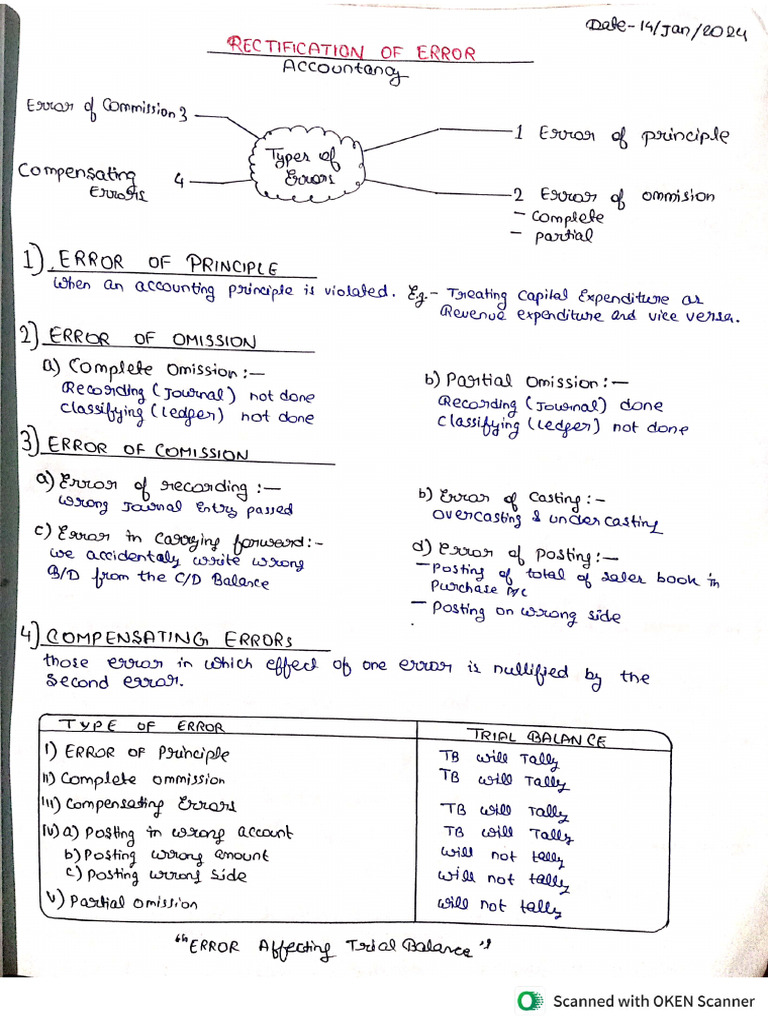 Date-14/Jan/2024
RECTIFICATION OF ERROR
Accountancy
Error of Commission 3
Compensating 4
Errors
Types of
Errors
1 Error of principle
2 Error of ommision
- Complete
- partial
1) ERROR OF PRINCIPLE
When an accounting principle is violated. E.g.- Treating Capital Expenditure as
Revenue expenditure and vice versa.
2) ERROR OF OMISSION
a) Complete Omission :-
Recording (Journal) not done
Classifying (Ledger) not done
b) Partial Omission :-
Recording (Journal) done
Classifying (Ledger) not done
3) ERROR OF COMISSION
a) Error of recording :-
Wrong Journal Entry passed
b) Error of Casting :-
Overcasting & undercasting
c) Error in Carrying forward :-
We accidentaly write wrong
B/D from the C/D Balance
d) Error of Posting :-
- Posting of total of sales book in
Purchase A/c
- Posting on wrong side
4) COMPENSATING ERRORS
those error in which effect of one error is nullified by the
Second error.
TYPE OF ERROR TRIAL BALANCE
I) ERROR OF Principle TB will Tally
II) Complete ommission TB will Tally
III) Compensating Errors TB will Tally
IV) a) Posting in wrong account TB will Tally
b) Posting wrong amount will not tally
c) Posting wrong side will not tally
V) Partial Omission will not tally
"ERROR Affecting Trial Balance"
Scanned with OKEN Scanner